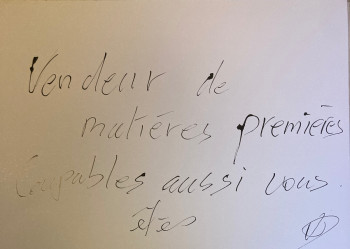 Vendeur de
matières premières
Coupables aussi vous.
êtes